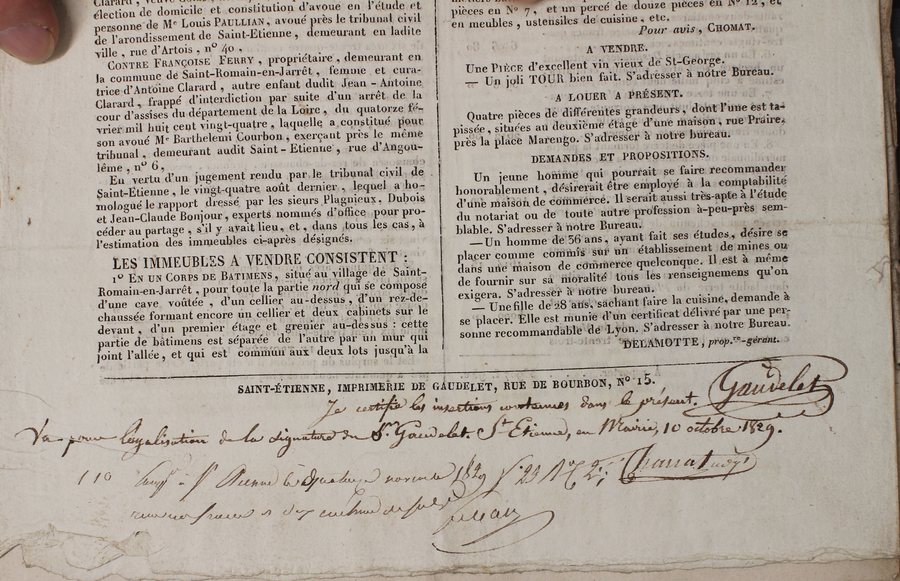 Clarard, veuve
élection de domicile et constitution d'avoue en l'étude et
personne de Me Louis PAULLIAN, avoué près le tribunal civil
de l'arondissement de Saint-Etienne, demeurant en ladite
ville, rue d'Artois, n° 40,
CONTRE FRANÇOISE FERRY, propriétaire, demeurant en
la commune de Saint-Romain-en-Jarrêt, femme et cura-
trice d'Antoine Clarard, autre enfant dudit Jean-Antoine
Clarard, frappé d'interdiction par suite d'un arrêt de la
cour d'assises du département de la Loire, du quatorze fé-
vrier mil huit cent vingt-quatre, laquelle a constitué pour
son avoué Me Barthelemi Courbon, exerçant près le même
tribunal, demeurant audit Saint-Etienne, rue d'Angou-
lême, n° 6,
En vertu d'un jugement rendu par le tribunal civil de
Saint-Etienne, le vingt-quatre août dernier, lequel a ho-
mologué le rapport dressé par les sieurs Plagnieux, Dubois
et Jean-Claude Bonjour, experts nommés d'office pour pro-
céder au partage, s'il y avait lieu, et, dans tous les cas, à
l'estimation des immeubles ci-après désignés.
LES IMMEUBLES A VENDRE CONSISTENT :
1° EN UN CORPS DE BATIMENS, situé au village de Saint-
Romain-en-Jarrêt, pour toute la partie nord qui se compose
d'une cave voûtée, d'un cellier au-dessus, d'un rez-de-
chaussée formant encore un cellier et deux cabinets sur le
devant, d'un premier étage et grenier au-dessus : cette
partie de bâtimens est séparée de l'autre par un mur qui
joint l'allée, et qui est commun aux deux lots jusqu'à la
pièces en N° 7, et un percé de douze pièces en N° 12, et
en meubles, ustensiles de cuisine, etc.
Pour avis, CHOMAT.
A VENDRE.
Une PIÈCE d'excellent vin vieux de St-George.
— Un joli TOUR bien fait. S'adresser à notre Bureau.
A LOUER A PRÉSENT.
Quatre pièces de différentes grandeurs, dont l'une est ta-
pissée, situées au deuxième étage d'une maison, rue Praire,
près la place Marengo. S'adresser à notre bureau.
DEMANDES ET PROPOSITIONS.
Un jeune homme qui pourrait se faire recommander
honorablement, désirerait être employé à la comptabilité
d'une maison de commerce. Il serait aussi très-apte à l'étude
du notariat ou de toute autre profession à-peu-près sem-
blable. S'adresser à notre Bureau.
—Un homme de 36 ans, ayant fait ses études, désire se
placer comme commis sur un établissement de mines ou
dans une maison de commerce quelconque. Il est à même
de fournir sur sa moralité tous les renseignemens qu'on
exigera. S'adresser à notre bureau.
— Une fille de 28 ans, sachant faire la cuisine, demande à
se placer. Elle est munie d'un certificat délivré par une per-
sonne recommandable de Lyon. S'adresser à notre Bureau.
DELAMOTTE, prop.re-gérant.
SAINT-ÉTIENNE, IMPRIMERIE DE GAUDELET, RUE DE BOURBON, N° 15.
Je certifie les insertions contenues dans le présent. Gaudelet
Vu pour légalisation de la signature du Sr. Gaudelet. St Etienne, en Mairie, 10 octobre 1829.
110 à St Etienne le novembre 1829